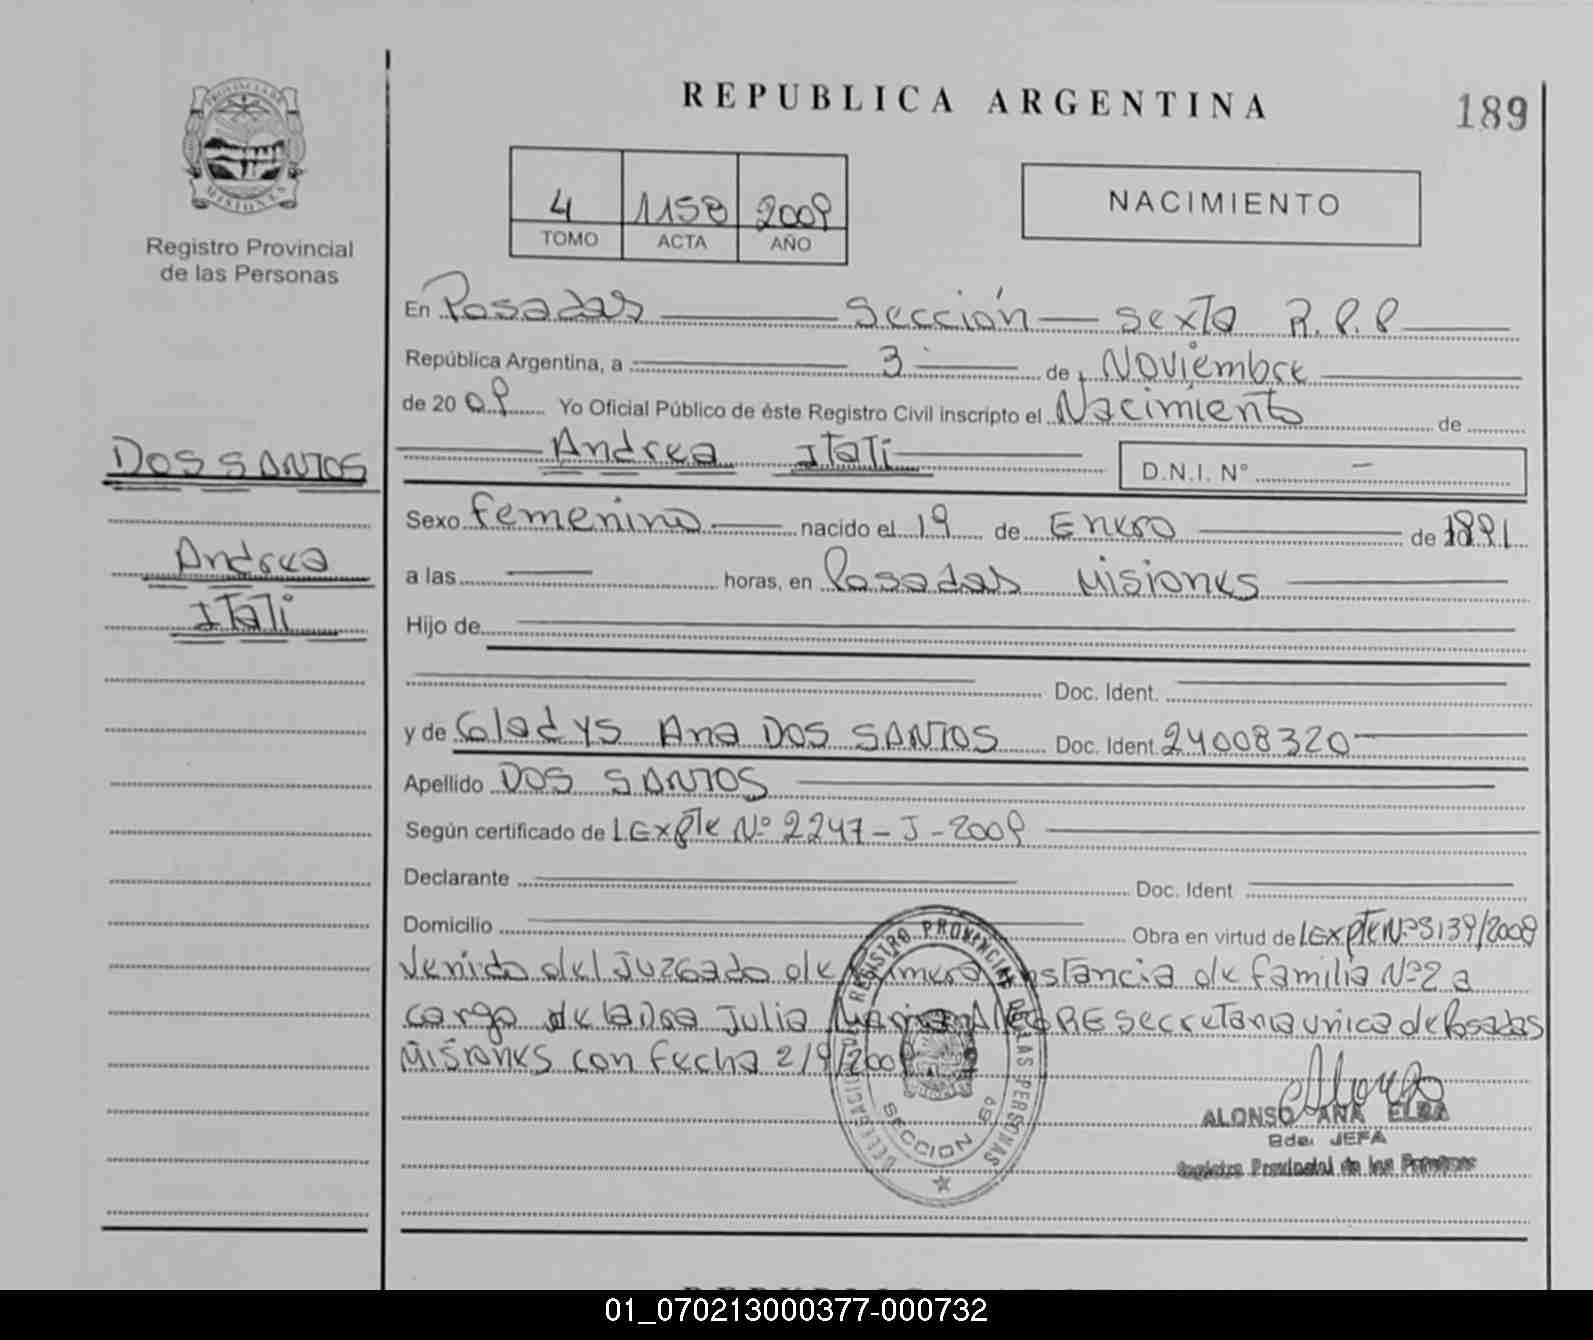 REPUBLICA ARGENTINA
189
PROVINCIA DE MISIONES
Registro Provincial
de las Personas
4 1158 2009
TOMO ACTA AÑO
NACIMIENTO
En Posadas Sección sexta R.P.P
República Argentina, a 3 de Noviembre
de 20 09 Yo Oficial Público de éste Registro Civil inscripto el Nacimiento de
Andrea Itati D.N.I. Nº -
DOS SANTOS
Andrea
Itati
Sexo femenino nacido el 19 de Enero de 1991
a las horas, en Posadas Misiones
Hijo de
Doc. Ident.
y de Gladys Ana DOS SANTOS Doc. Ident. 24008320
Apellido DOS SANTOS
Según certificado de L.Expte Nº 2247-J-2009
Declarante Doc. Ident
Domicilio Obra en virtud de L.Expte Nº 3139/2008
Venido del Juzgado de Primera Instancia de familia Nº2 a
cargo de la Dra Julia ALEGRE secretaria unica de Posadas
Misiones con fecha 2/9/2009
DELEGACION REGISTRO PROVINCIAL DE LAS PERSONAS
SECCION 6º
ALONSO ANA ELBA
Bda. JEFA
Registro Provincial de las Personas
01_070213000377-000732